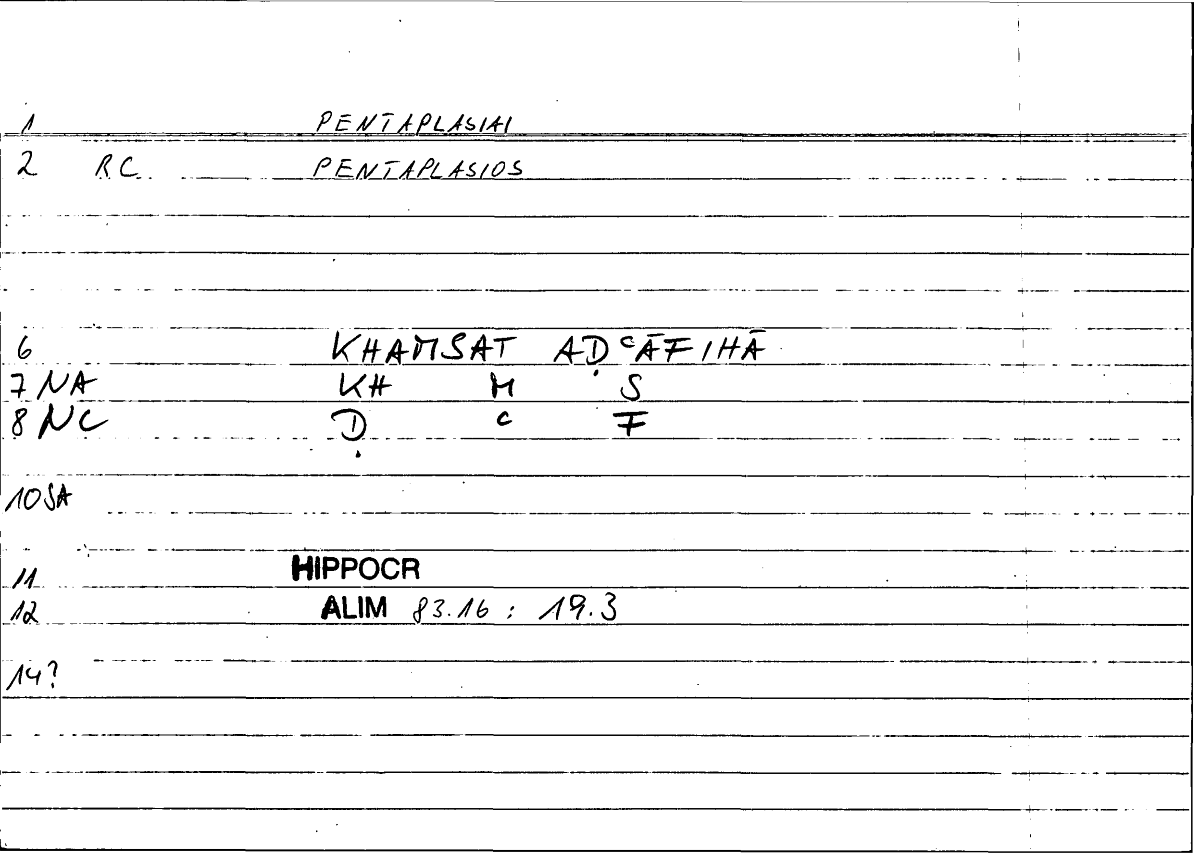 1 PENTAPLASIAI
2 RC. PENTAPLASIOS
6 KHAMSAT AḌʿĀFIHĀ
7 NA KH M S
8 NC Ḍ ʿ F
10 SA
11 HIPPOCR
12 ALIM 83.16 : 19.3
14?